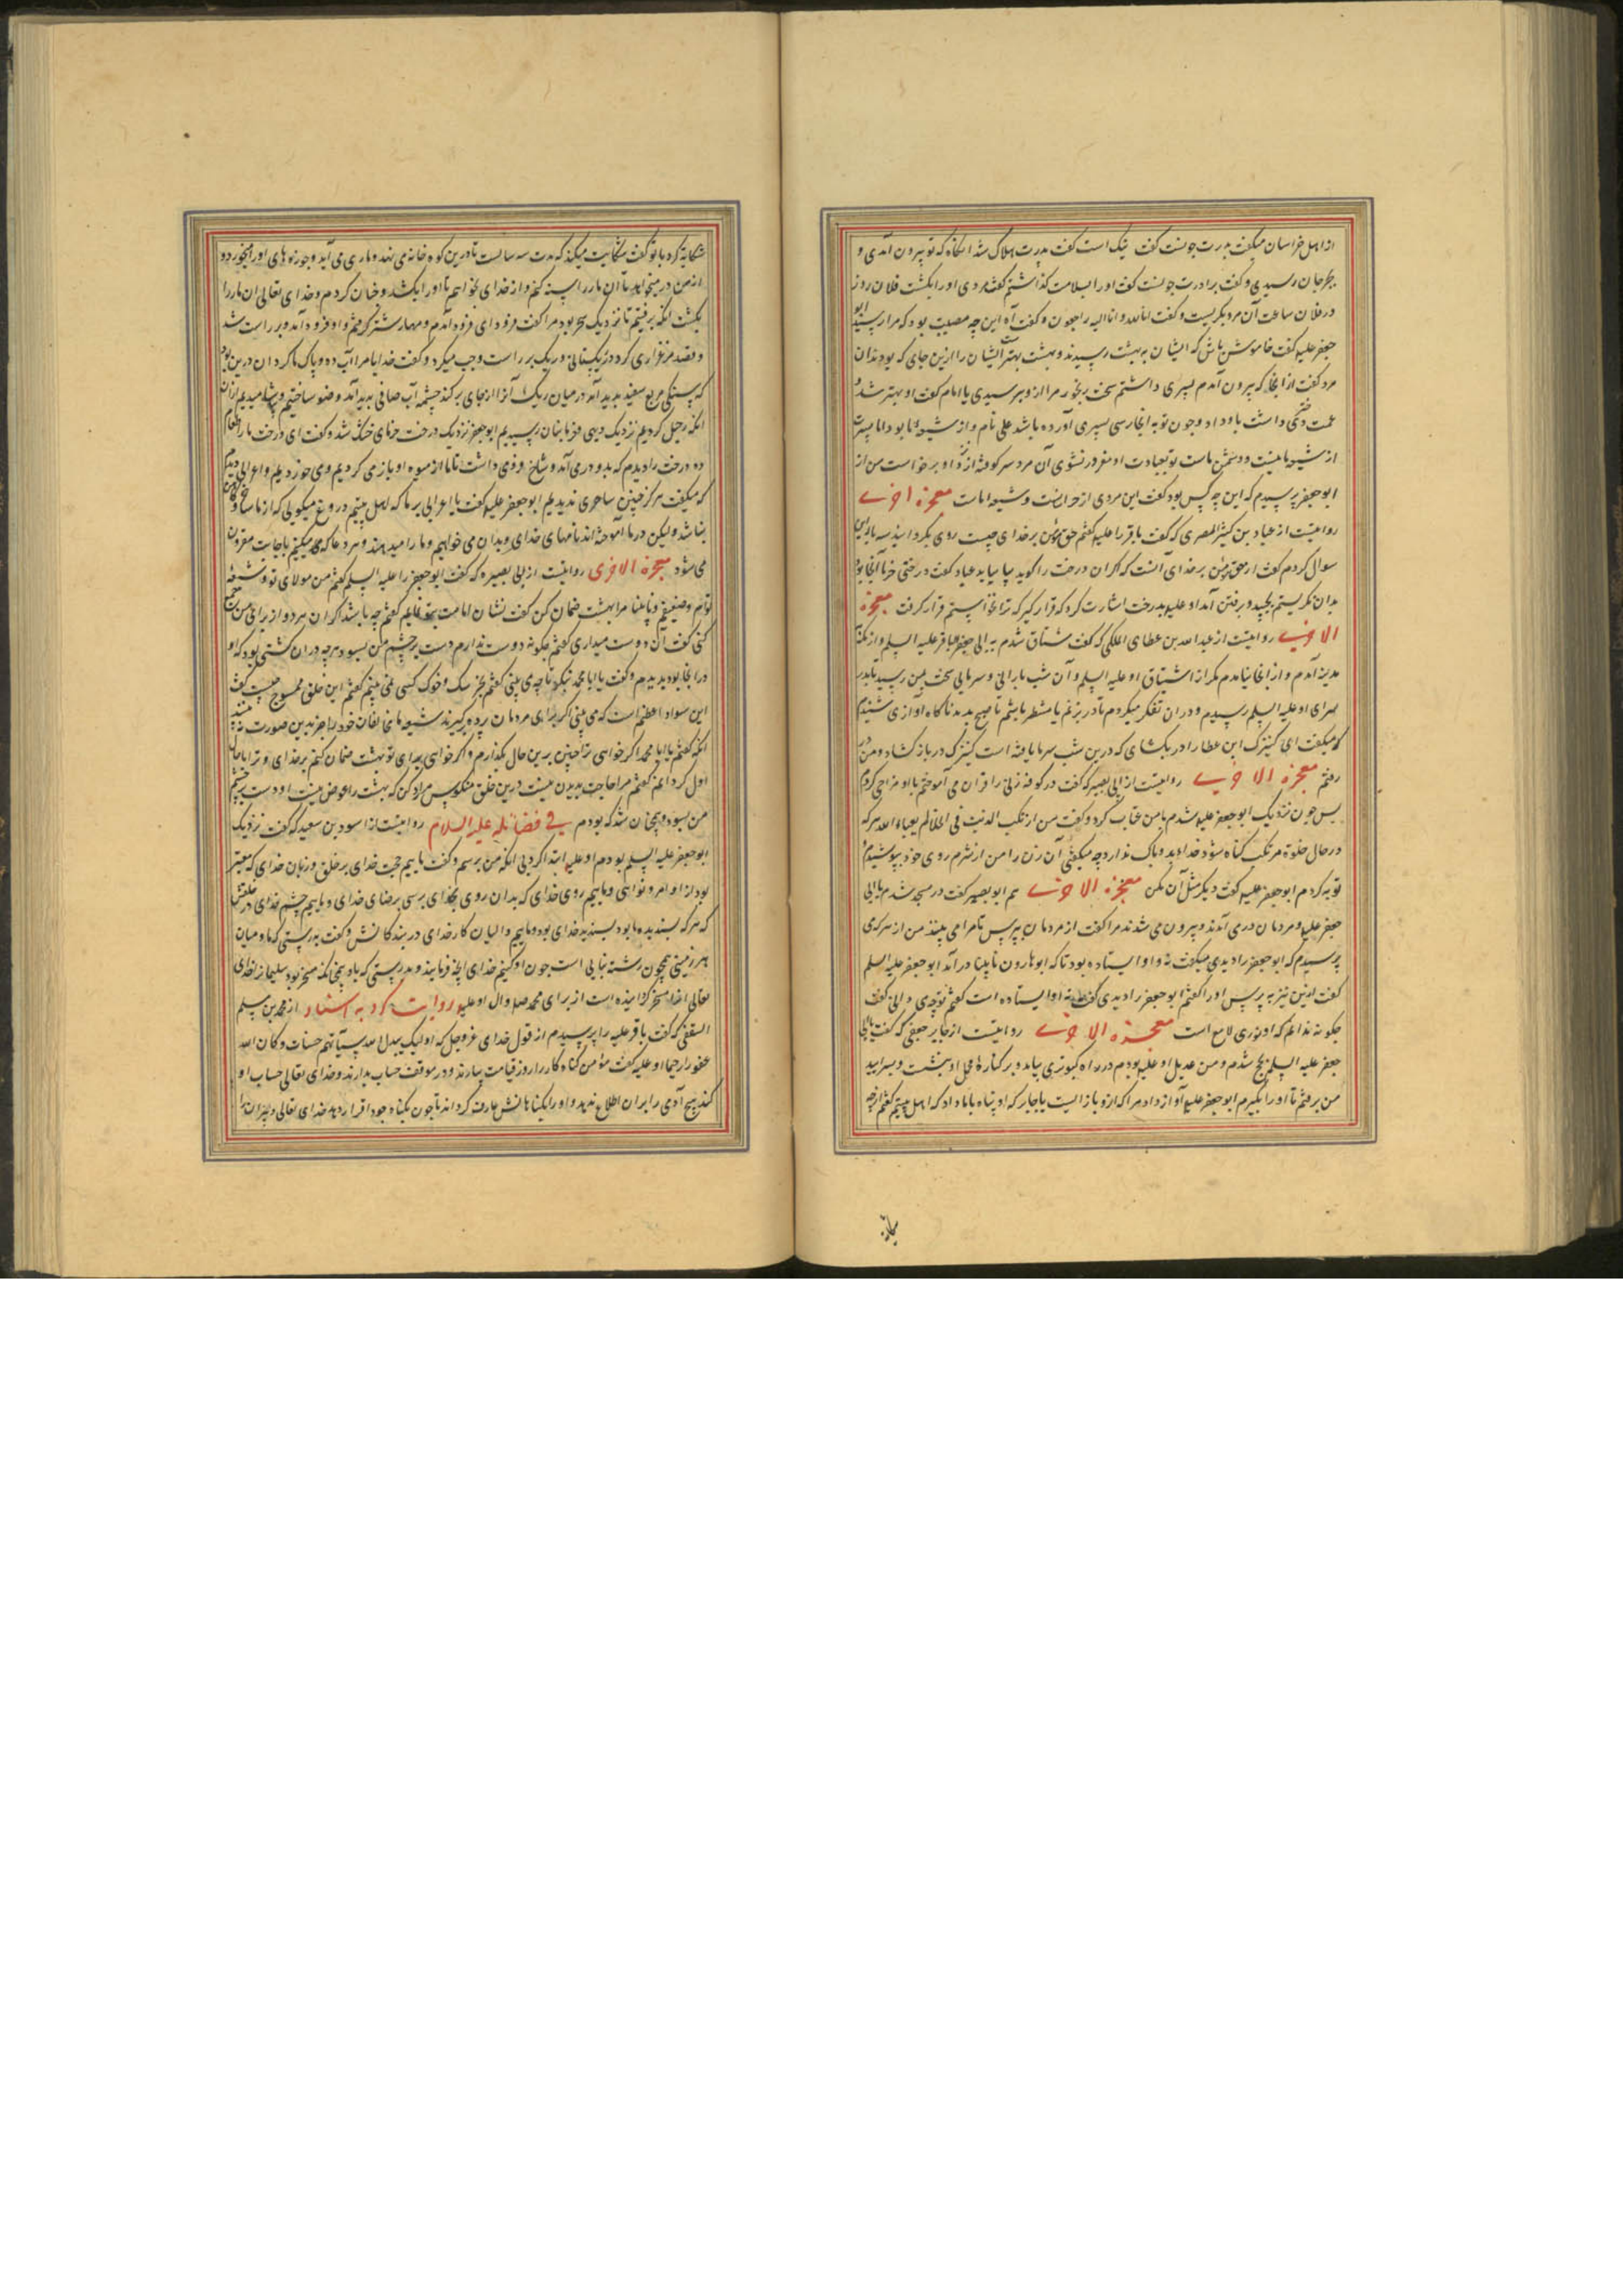 از اهل خراسان میکفت پدرت چونست کفت نیک است کفت پدرت هلاک شد انکاه که تو بیرون آمدی و
بجرجان رسیدی و کفت برادرت چونست کفت او را بسلامت کذاشتم کفت مردی او را بکشت فلان روز
در فلان ساعت آن مرد بکریست و کفت انا لله و انا الیه راجعون و کفت آه این چه مصیبت بود که مرا رسید ابو
جعفر علیه کفت خاموش باش که ایشان به بهشت رسیدند و بهشت بهتر است ایشان را ازین جای که بودند آن
مرد کفت از انجا که بیرون آمدم پسری داشتم سخت رنجور مرا ازو نپرسیدی یا امام کفت او بهتر شد و
عمت دختری داشت باو داد و چون تو به انجا رسی پسری آورده باشد علی نام و از شیعه ما بود اما پسرت
از شیعه ما نیست و دشمن ماست بعبادت او مغرور نشوی آن مرد سر کوفته از نزد او برخواست من از
ابو جعفر پرسیدم که این چه کس بود کفت این مردی از خراسانست و شیعه ماست معجزه اخری
روایتست از عباد بن کثیر البصری که کفت باقر را علیه کفتم حق مؤمن بر خدای چیست روی بکردانید سه بار این
سوال کردم کفت از حق مؤمن بر خدای آنست که اکر آن درخت را کوید بیا بیاید عباد کفت درختی خرما آنجا بود
بدان نکریستم بجنبید و برفتن آمد او علیه بدرخت اشارت کرد که قرار کیر که ترا نخواستم قرار کرفت معجزه
الاخری روایتست از عبد الله بن عطای المکی که کفت مشتاق شدم به ابی جعفر الباقر علیه السلم و از مکه
مدینه آمدم و از انجا نیامدم مکر از اشتیاق او علیه السلم و آن شب بارانی و سرمایی سخت بمن رسید تا بدر
سرای او علیه السلم رسیدم و در آن تفکر میکردم تا در بزنم یا منتظر باشم تا صبح بدمد ناکاه آوازی شنیدم
که میکفت ای کنیزک ابن عطا را در بکشای که درین شب سرما یافته است کنیزک در باز کشاد و من در
رفتم معجزه الاخری روایتست از ابی بصیر که کفت در کوفه زنی را قرآن می آموختم با او مزاحی کردم
پس چون نزدیک ابو جعفر علیه شدم با من عتاب کرد و کفت من ارتکب الذنب فی الخلا لم یعباء الله هر که
در حال خلوة مرتکب کناه شود خدا بدو باک ندارد چه میکفتی آن زن را من از شرم روی خود بپوشیدم و
توبه کردم ابو جعفر علیه کفت دیکر مثل آن مکن معجزه الاخری هم ابو بصیر کفت در مسجد شدم با ابی
جعفر علیه و مردمان در می آمدند و بیرون می شدند مرا کفت از مردمان بپرس تا مرا می بینند من از هر که می
پرسیدم که ابو جعفر را دیدی میکفت نه و او ایستاده بود تا که ابو هارون نابینا در آمد ابو جعفر علیه السلم
کفت ازین نیز به پرس او را کفتم ابو جعفر را دیدی کفت نه او ایستاده است کفتم تو چه دانی کفت
چکونه ندانم که او نوری لامع است معجزه الاخری روایتست از جابر جعفی که کفت با ابی
جعفر علیه السلم بحج شدم و من عدیل او علیه بودم در راه کبوتری بیامد و بر کناره محمل او بنشست و بسرایید
من برفتم تا او را بکیرم ابو جعفر علیه آواز داد مرا که ازو باز ایست یا جابر که او پناه با ما داد که اهل بیتیم کفتم از چه
شکایة
شکایة کرد با تو کفت شکایت میکند که مدت سه سالست تا درین کوه خانه می نهد و ماری می آید و جوزه های او را میخورد و
از من درمیخواهد تا آن مار را کنم و از خدای نخواهم تا او را بکشد و چنان کردم و خدای تعالی آن مار را
بکشت انکه برفتیم تا نزدیک سحر بود مرا کفت فرود ای فرود آمدم و مهار شتر کرفتم و او فرود آمد و بر راست شد
کرد در یکستانی و ریک بر راست و چپ میکرد و کفت خدایا ما را آب ده و پاک ما کردان درین بود
که سنکی مربع سفید بدید آمد در میان ریک آنرا از جای برکند چشمه آب صافی بدید آمد وضو ساختیم و بیاشامیدیم از آن
انکه رحیل کردیم نزدیک دیهی و خرماستان رسیدیم ابو جعفر نزدیک درخت خرمای خشک شد و کفت ای درخت ما را طعام
ده درخت را دیدم که بدو در می آمد و شاخ فرو می داشت تا ما از میوه او باز می کردیم و می خوردیم و اعرابی دیدم
که میکفت هرکز چنین ساحری ندیدیم ابو جعفر علیه کفت یا اعرابی بر ما که اهل بیتیم دروغ میکویی که از ما ساحر و کاهن
نباشد ولیکن در ما آموخته اند نامهای خدای و بدان می خوانیم و ما را میدهند و هر دعا که میکنیم باجابت مقرون
می شود معجزه الاخری روایتست از ابی بصیر که کفت ابو جعفر را علیه السلم کفتم من مولای تو و شیعه
توام و ضعیفم و نابینا مرا بهشت ضمان کن کفت نشان امامت بتو نمایم کفتم چه باشد اکر آن هر دو از برای من جمع
کنی کفت آن دوست میداری کفتم چکونه دوست ندارم دست بر چشم من بسود هر چه در آن بود که او
در انجا بود بدیدم و کفت یا ابا محمد بنکر تا چه می بینی کفتم بجز سک و خوک کسی نمی بینم کفتم این خلق ممسوخ چیست کفت
این سواد اعظم است که می بینی اکر برای مردمان پرده برکیرند شیعه ما مخالفان خود را جز بدین صورت نه بینند
انکه کفتم یا ابا محمد اکر خواهی ترا چنین برین حال بکذارم و اکر خواهی برای تو بهشت ضمان کنم بر خدای و ترا با حال
اول کردانم کفتم مرا حاجت بدیدن نیست درین خلق منکوس مرا رد کن که بهشت را عوض نیست او دست بر چشم
من بسود و همچنان شد که بودم فی فضائله علیه السلام روایتست از اسود بن سعید که کفت نزدیک
ابو جعفر علیه السلم بودم او علیه ابتدا کرد بی انکه من پرسم و کفت ماییم حجت خدای بر خلق و زبان خدای که معبر
بود از اوامر و نواهی و ماییم روی خدای که بدان روی بخدای برسی برضای خدای و ماییم چشم خدای در خلقش
که هر که پسندیده ما بود پسندیده خدای بود و ماییم والیان کار خدای در بندکانش و کفت بدرستی که ما و میان
هر زمینی همچون رشته بنایی است چون او کنیم خدای آنچه فرمایند و بدرستی که باد همچنانکه مسخر بود سلیمان را خدای
تعالی انرا مسخر کردانیده است از برای محمد صلم و آل او علیه روایت کرد به اسناد از محمد بن مسلم
الثقفی که کفت باقر علیه را پرسیدم از قول خدای عز و جل که اولئک یبدل الله سیآتهم حسنات و کان الله
غفورا رحیما او علیه کفت مؤمن کناه کار را روز قیامت بیارند و در موقف حساب بدارند و خدای تعالی حساب او
کند هیچ آدمی را بر آن اطلاع ندهد و او را بکناهانش عارف کرداند تا چون بکناه خود اقرار دهد خدای تعالی دبیران را